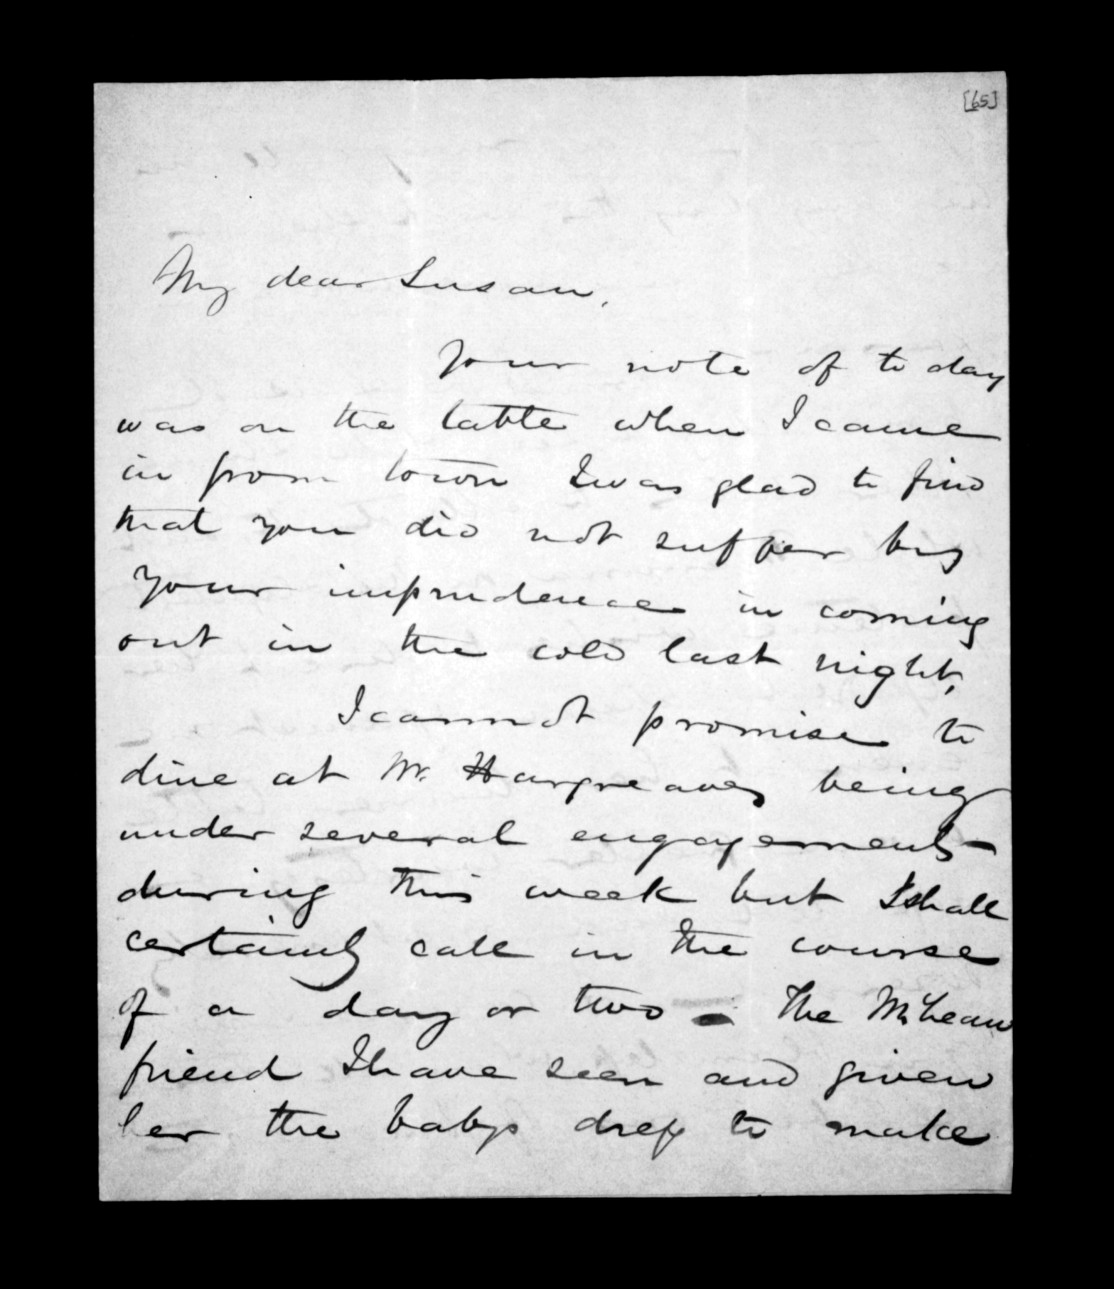 [65]
My dear Susan,
Your note of to day
was on the table when I came
in from town I was glad to find
that you did not suffer by
your imprudence in coming
out in the cold last night,
I cannot promise to
dine at Mr. Hargreaves being
under several engagements
during this week but I shall
certainly call in the course
of a day or two - The McLean
friend I have seen and given
her the babys dress to make